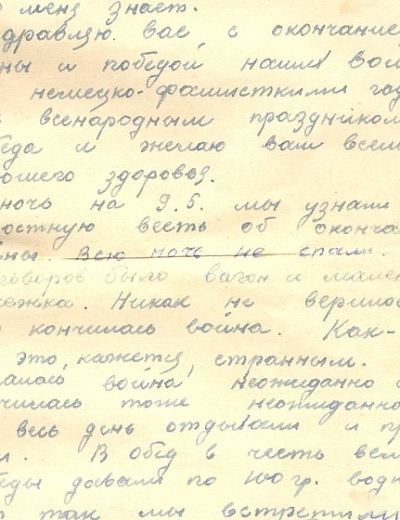 меня знает.
здравляю вас, с окончание
ны и победой наших вой
немецко-фашисткими го
всенародным праздником
беда и желаю вам всем
рошего здоровоя.
ночь на 9.5. мы узнали
достную весть об оконча
ны. Всю ночь не спали.
говоров было вагон и мален
тележка. Никак не верилос
кончилась война. Как-
это, кажется, странным.
чалась война неожиданно
нчилась тоже неожиданно
весь день отдыхали и пр
л. В обед в честь вел
еды давали по 100 гр. водк
так мы встретили